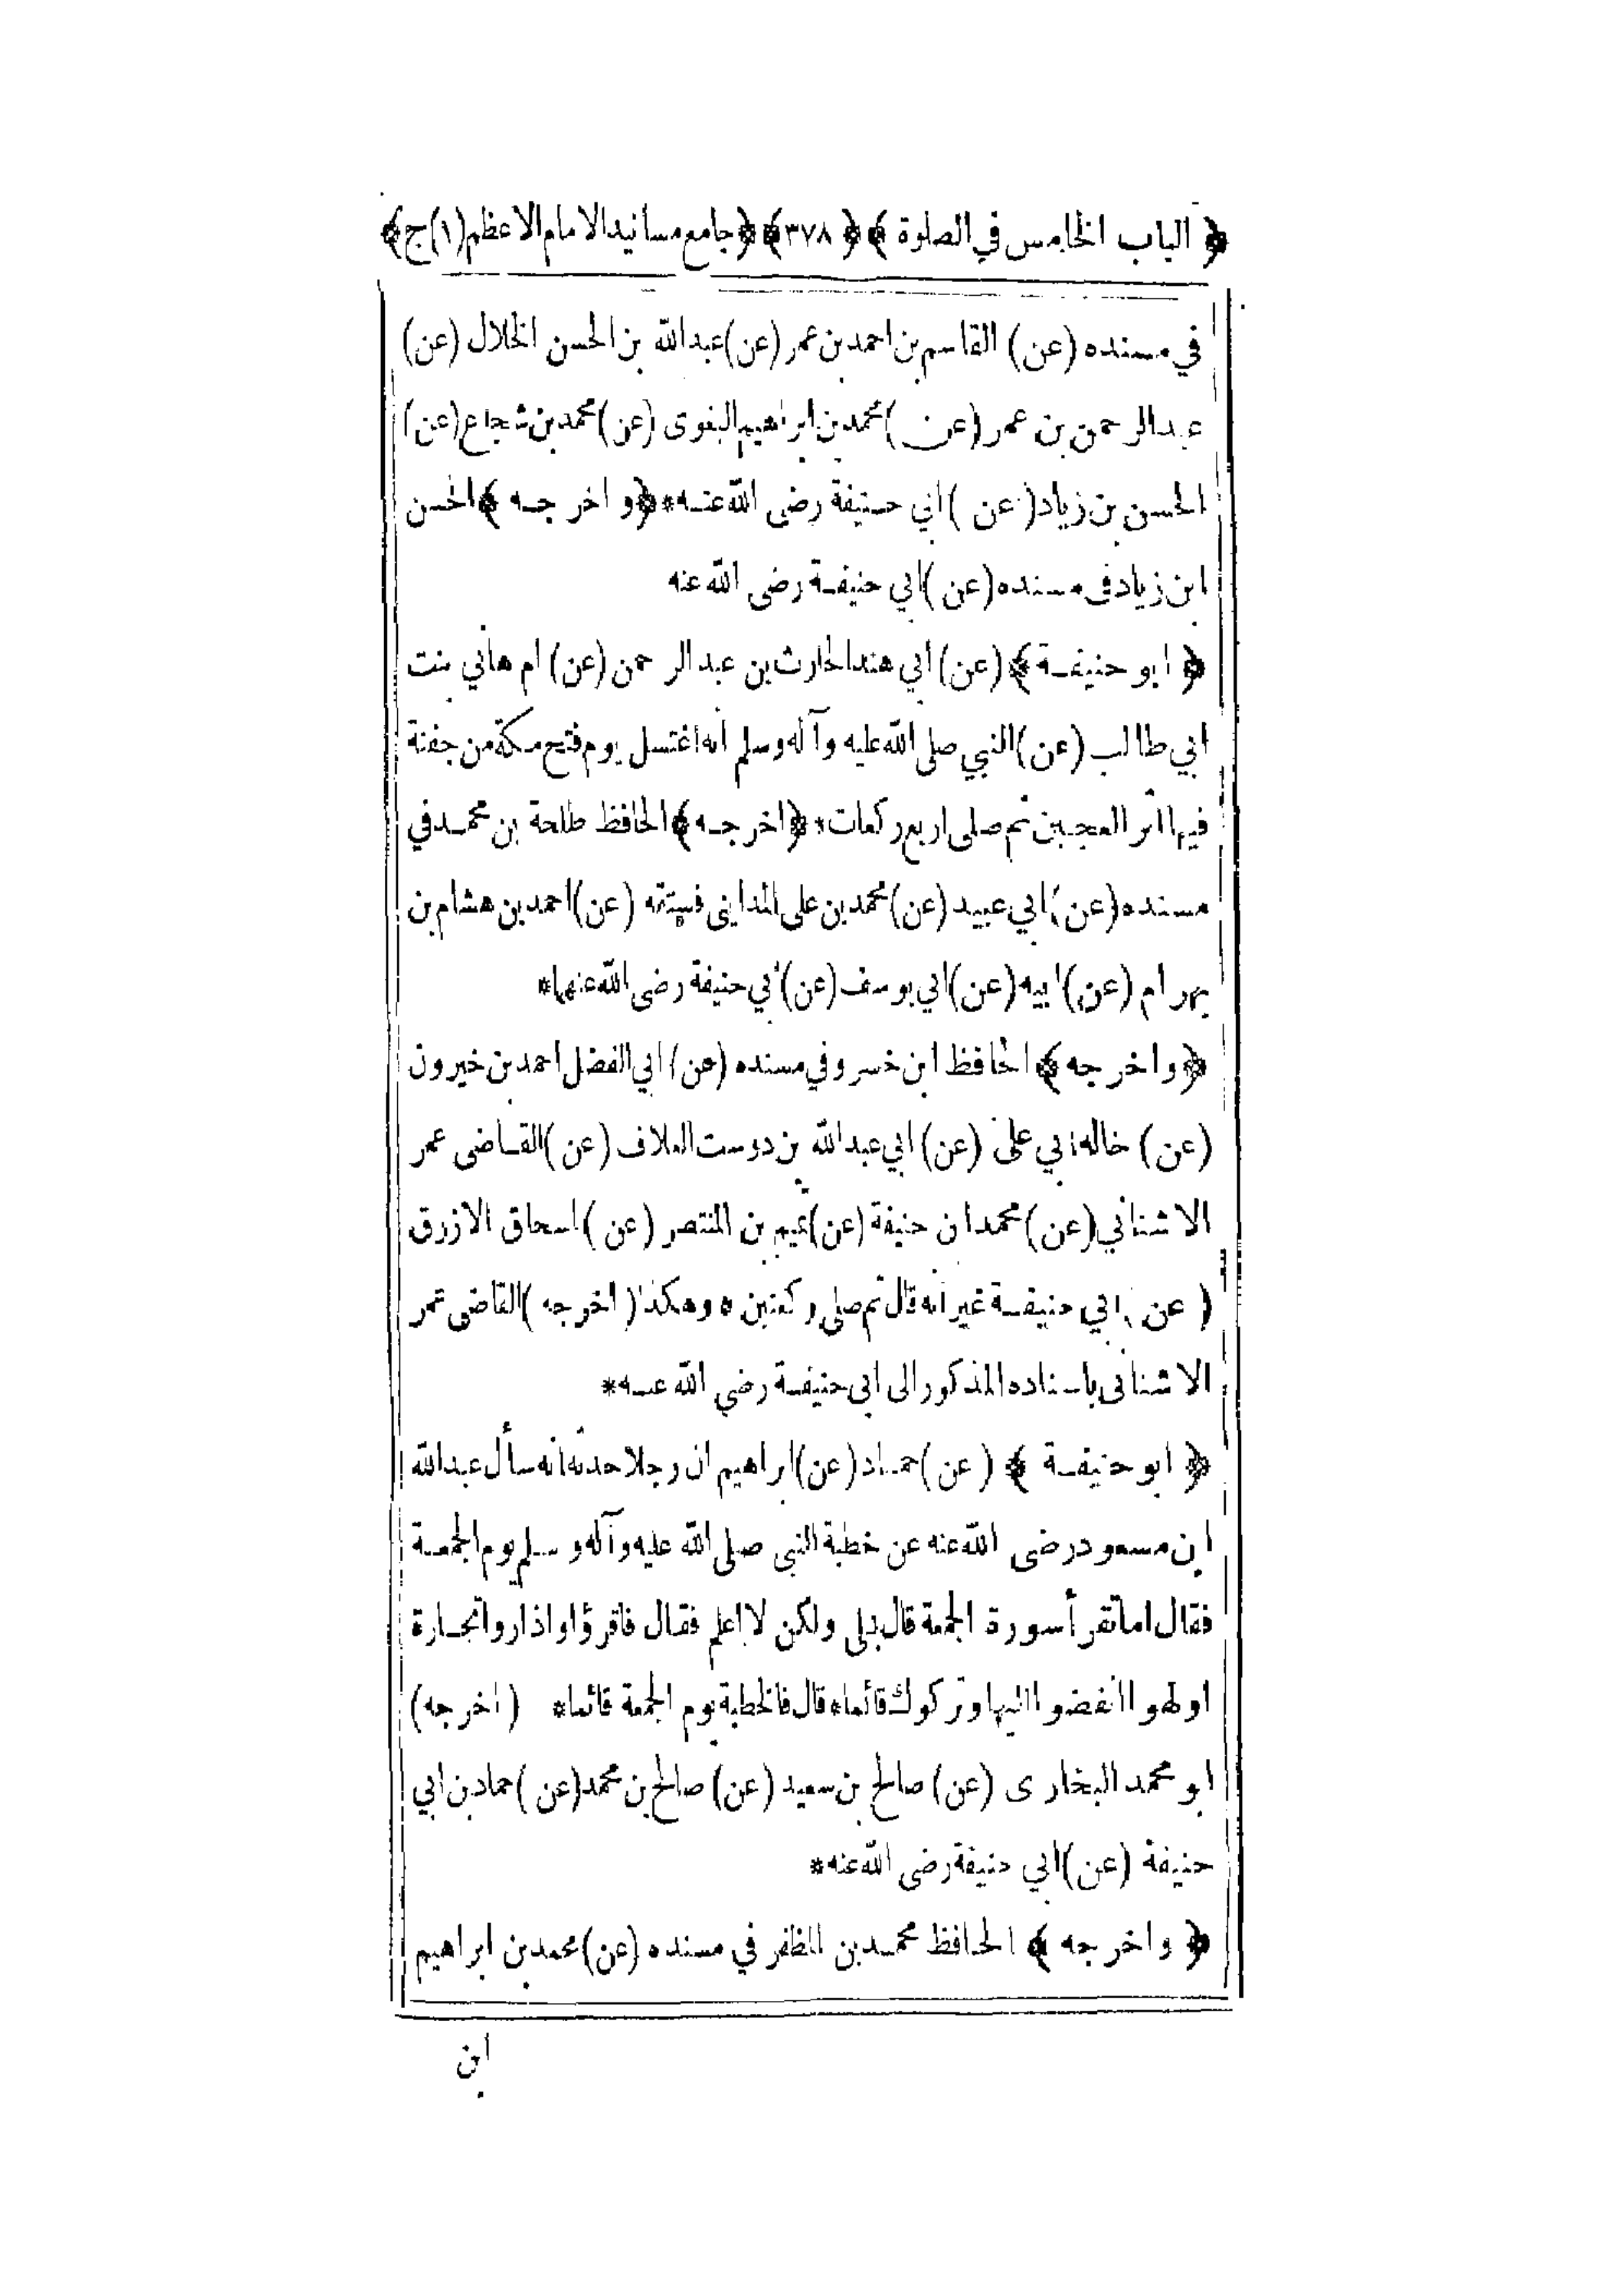 ﴿ الباب الخامس في الصلوة ﴾ ﴿ ٣٧٨ ﴾ ﴿ جامع مسانيد الامام الاعظم (١) ج ﴾
في مسنده (عن) القاسم بن احمد بن عمر (عن) عبد الله بن الحسن الخلال (عن)
عبد الرحمن بن عمر (عن) محمد بن ابراهيم البغوى (عن) محمد بن شجاع (عن)
الحسن بن زياد (عن) ابي حنيفة رضى الله عنه * ﴿ و اخرجه ﴾ الحسن
ابن زياد في مسنده (عن) ابي حنيفة رضى الله عنه
﴿ ابو حنيفة ﴾ (عن) ابي هند الحارث بن عبد الرحمن (عن) ام هاني بنت
ابي طالب (عن) النبي صلى الله عليه وآله وسلم انه اغتسل يوم فتح مكة من جفنة
فيها اثر العجين ثم صلى اربع ركعات * ﴿ اخرجه ﴾ الحافظ طلحة بن محمد في
مسنده (عن) ابي عبيد (عن) محمد بن على المدايني فستقه (عن) احمد بن هشام بن
بهرام (عن) ابيه (عن) ابي يوسف (عن) ابي حنيفة رضى الله عنهما *
﴿ واخرجه ﴾ الحافظ ابن خسرو في مسنده (عن) ابي الفضل احمد بن خيرون
(عن) خاله ابي على (عن) ابي عبد الله بن دوست العلاف (عن) القاضى عمر
الاشناني (عن) محمد ان حنيفة (عن) تميم بن المنتصر (عن) اسحاق الازرق
(عن) ابي حنيفة غير انه قال ثم صلى ركعتين ه وهكذا (اخرجه) القاضى عمر
الاشناني باسناده المذكور الى ابى حنيفة رضي الله عنه *
﴿ ابو حنيفة ﴾ (عن) حماد (عن) ابراهيم ان رجلا حدثه انه سأل عبد الله
ابن مسعود رضى الله عنه عن خطبة النبي صلى الله عليه وآله وسلم يوم الجمعة
فقال اما تقرأ سورة الجمعة قال بلى ولكن لا اعلم فقال فاقرؤا واذا رأوا تجارة
او لهوا انفضوا اليها وتركوك قائما * قال فالخطبة يوم الجمعة قائما * (اخرجه)
ابو محمد البخارى (عن) صالح بن سعيد (عن) صالح بن محمد (عن) حماد بن ابي
حنيفة (عن) ابي حنيفة رضى الله عنه *
﴿ واخرجه ﴾ الحافظ محمد بن المظفر في مسنده (عن) محمد بن ابراهيم
ابن